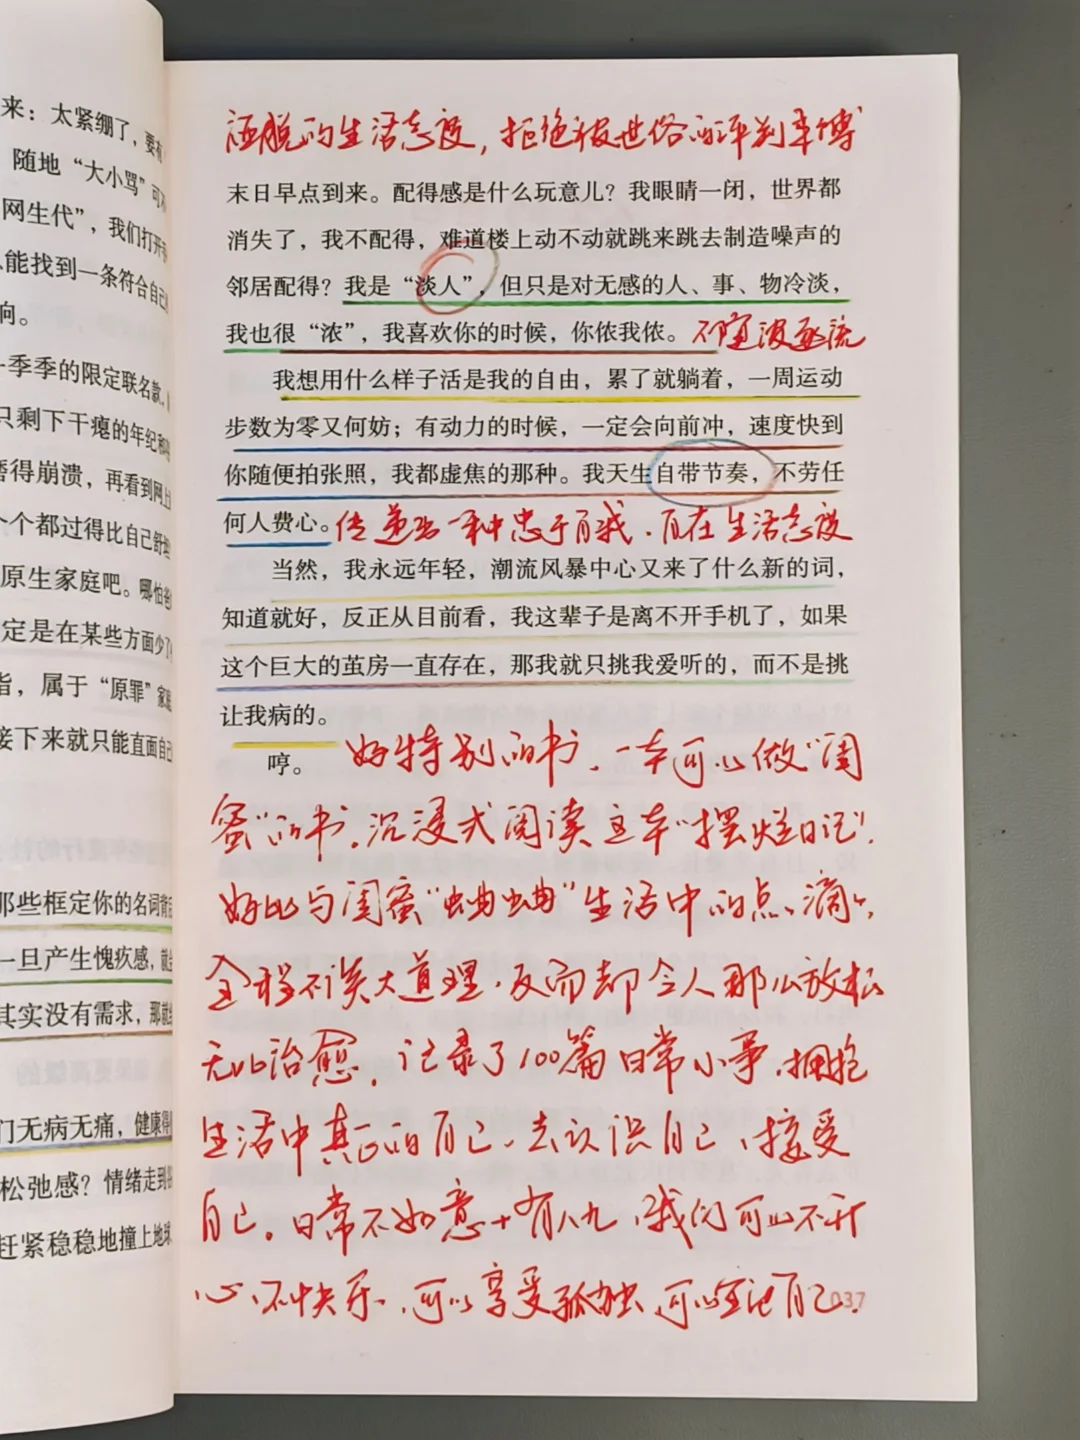 来：太紧绷了，要有
随地“大小骂”可不
网生代”，我们打开
能找到一条符合自己
响。
一季季的限定联名款，
只剩下干瘪的年纪和
得崩溃，再看到网上
个个都过得比自己舒坦
原生家庭吧。哪怕爸
定是在某些方面少了
指，属于“原罪”家庭
接下来就只能直面自己
那些框定你的名词背后
一旦产生愧疚感，就
其实没有需求，那就
们无病无痛，健康得
松弛感？情绪走到
赶紧稳稳地撞上地球
洒脱的生活态度，拒绝被世俗的评判束缚
末日早点到来。配得感是什么玩意儿？我眼睛一闭，世界都
消失了，我不配得，难道楼上动不动就跳来跳去制造噪声的
邻居配得？我是“淡人”，但只是对无感的人、事、物冷淡，
我也很“浓”，我喜欢你的时候，你侬我侬。不随波逐流
我想用什么样子活是我的自由，累了就躺着，一周运动
步数为零又何妨；有动力的时候，一定会向前冲，速度快到
你随便拍张照，我都虚焦的那种。我天生自带节奏，不劳任
何人费心。传递出一种忠于自我、自在生活态度
当然，我永远年轻，潮流风暴中心又来了什么新的词，
知道就好，反正从目前看，我这辈子是离不开手机了，如果
这个巨大的茧房一直存在，那我就只挑我爱听的，而不是挑
让我病的。
哼。好特别的书，一本可以做“闺
蜜”的书，沉浸式阅读这本“摆烂日记”，
好比与闺蜜“蛐蛐”生活中的点点滴滴，
全程不谈大道理，反而却令人那么放松
无比治愈，记录了100篇日常小事，拥抱
生活中真正的自己，去认识自己、接受
自己。日常不如意十有八九，我们可以不开
心、不快乐，可以享受孤独，可以宠自己。
037